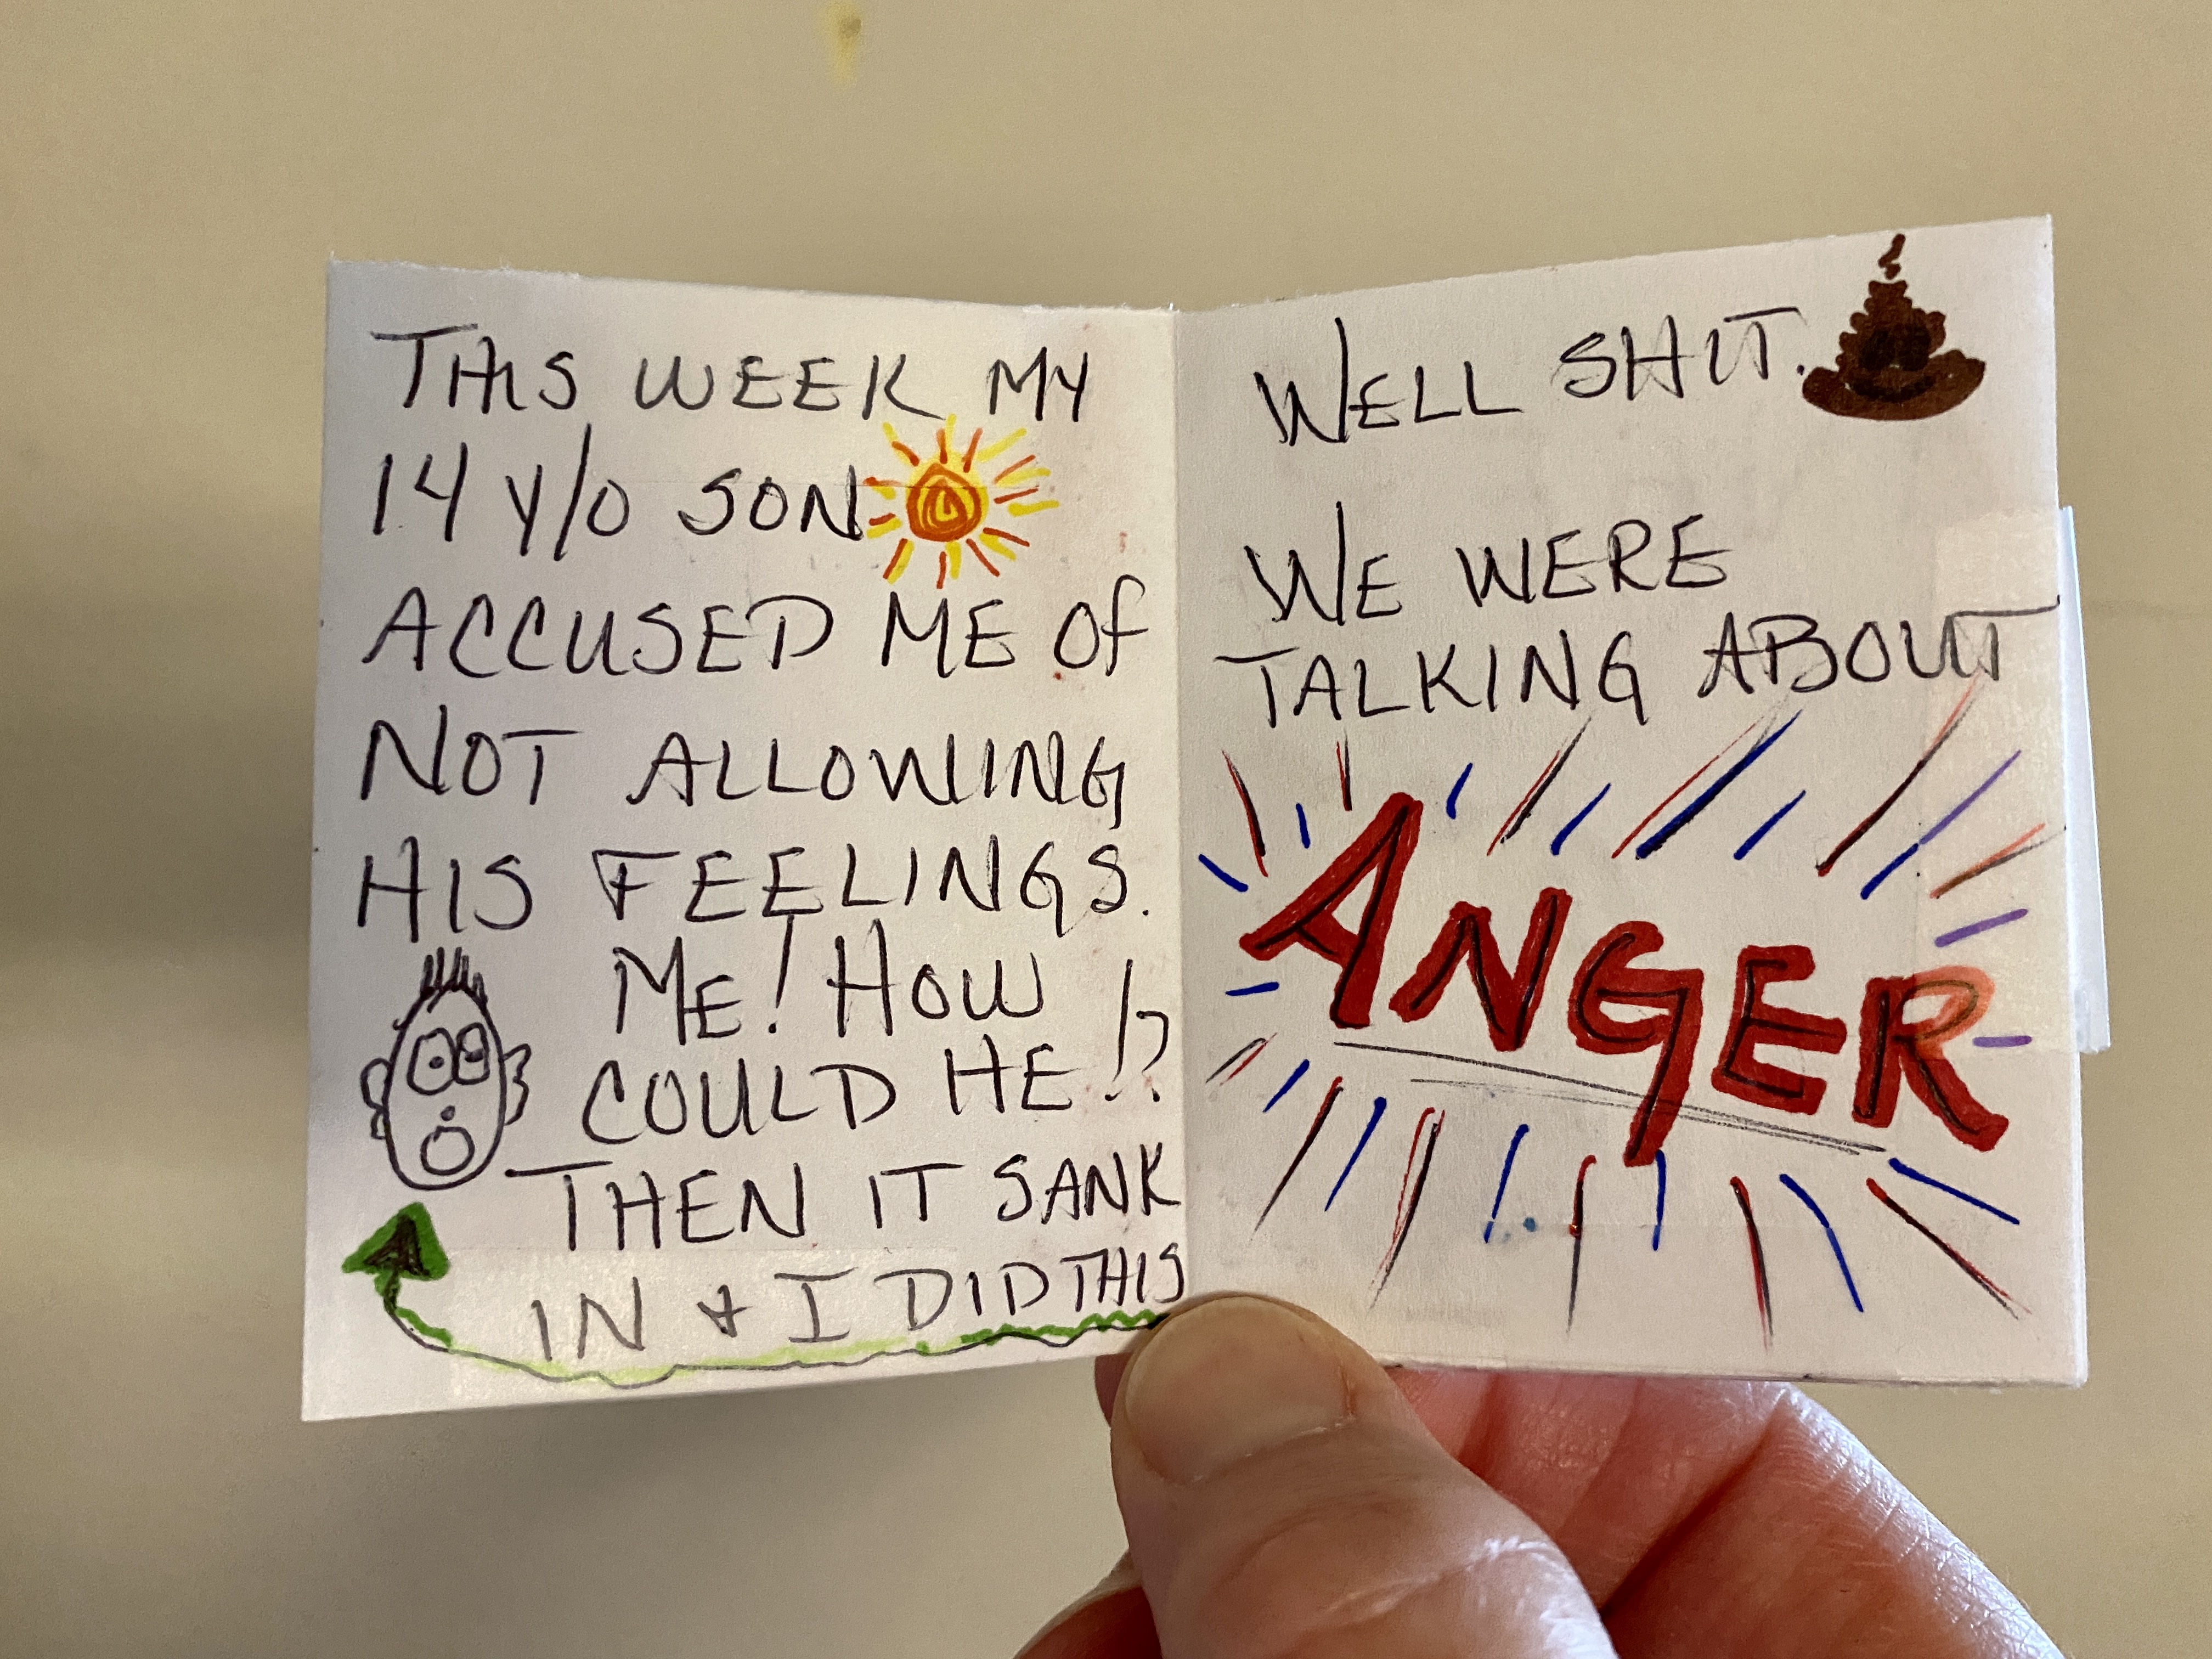 THIS WEEK MY
14 Y/O SON
ACCUSED ME OF
NOT ALLOWING
HIS FEELINGS.
ME! HOW
COULD HE!?
THEN IT SANK
IN & I DID THIS
WELL SHIT.
WE WERE
TALKING ABOUT
ANGER